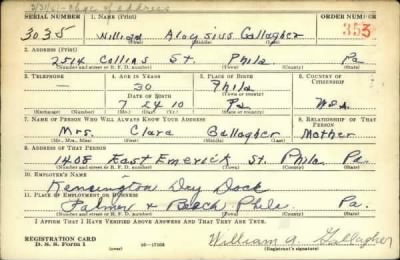 2/31/41 - Change of address
SERIAL NUMBER 1. NAME (Print) ORDER NUMBER
3035 William Aloysius Gallagher 353
(First) (Middle) (Last)
2. ADDRESS (Print)
2514 Collins St. Phila. Pa
(Number and street or R. F. D. number) (Town) (County) (State)
3. TELEPHONE 4. AGE IN YEARS 5. PLACE OF BIRTH 6. COUNTRY OF CITIZENSHIP
30 Phila
DATE OF BIRTH (Town or county)
7 24 10 Pa USA
(Exchange) (Number) (Mo.) (Day) (Yr.) (State or country)
7. NAME OF PERSON WHO WILL ALWAYS KNOW YOUR ADDRESS 8. RELATIONSHIP OF THAT PERSON
Mrs. Clara Gallagher Mother
(Mr., Mrs., Miss) (First) (Middle) (Last)
9. ADDRESS OF THAT PERSON
1408 East Emerick St. Phila. Pa.
(Number and street or R. F. D. number) (Town) (County) (State)
10. EMPLOYER'S NAME
Kensington Dry Dock
11. PLACE OF EMPLOYMENT OR BUSINESS
Palmer & Beach Phila. Pa.
(Number and street or R. F. D. number) (Town) (County) (State)
I AFFIRM THAT I HAVE VERIFIED ABOVE ANSWERS AND THAT THEY ARE TRUE.
REGISTRATION CARD
D. S. S. Form 1 (over) 16-17105 William A Gallagher
(Registrant's signature)